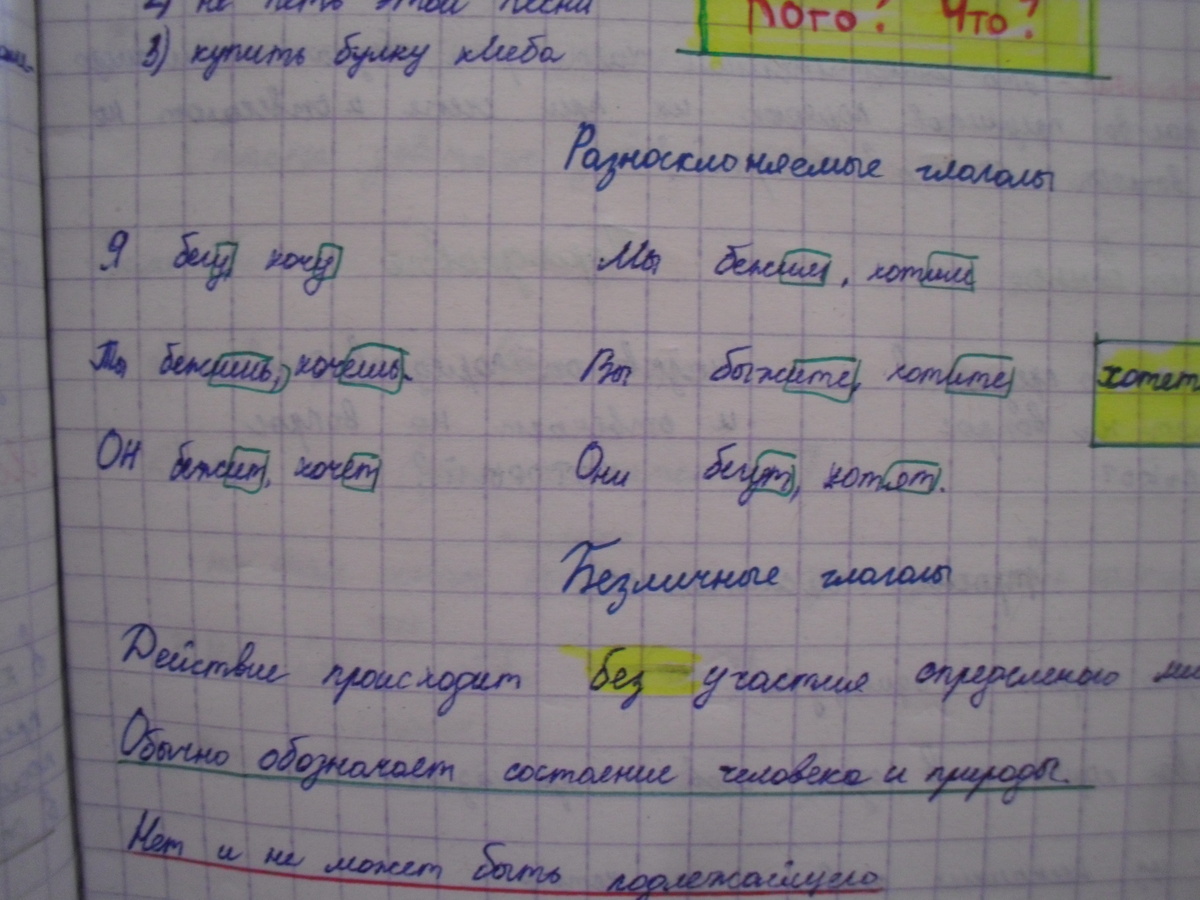 2) не петь этой песни
Кого? Что?
3) купить булку хлеба
Разносклоняемые глаголы
Я бегу, хочу Мы бежим, хотим
Ты бежишь, хочешь. Вы быжите, хотите
хотет
Он бежит, хочет Они бегут, хотят.
Безличные глаголы
Действие происходит без участия определеного
Обычно обозначает состояние человека и природы.
Нет и не может быть подлежайщего